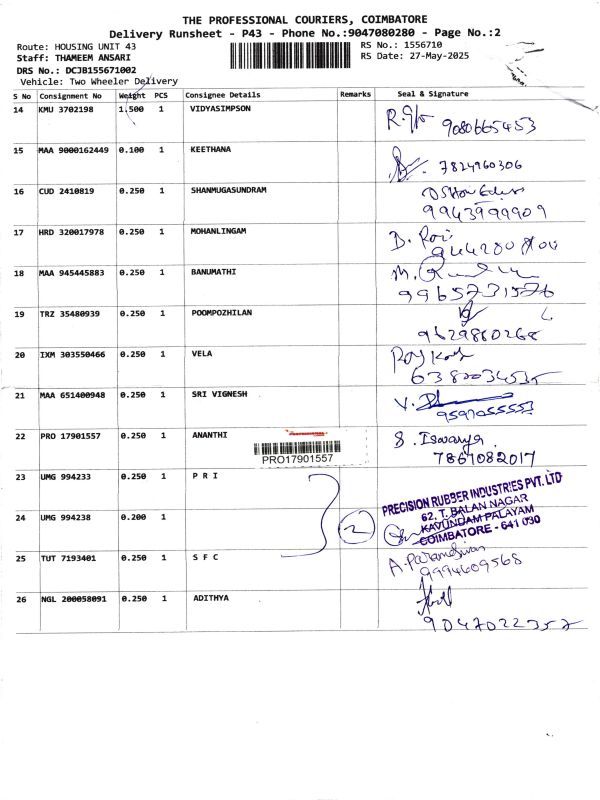 THE PROFESSIONAL COURIERS, COIMBATORE
Delivery Runsheet - P43 - Phone No.:9047080280 - Page No.:2
Route: HOUSING UNIT 43
RS No.: 1556710
Staff: THAMEEM ANSARI
RS Date: 27-May-2025
DRS No.: DCJB155671002
Vehicle: Two Wheeler Delivery
S No Consignment No Weight PCS Consignee Details Remarks Seal & Signature
14 KMU 3702198 1.500 1 VIDYASIMPSON
9080665453
15 MAA 9000162449 0.100 1 KEETHANA
7824960306
16 CUD 2410819 0.250 1 SHANMUGASUNDRAM
9943999909
17 HRD 320017978 0.250 1 MOHANLINGAM
18 MAA 945445883 0.250 1 BANUMATHI
19 TRZ 35480939 0.250 1 POOMPOZHILAN
9629880268
20 IXM 303550466 0.250 1 VELA
21 MAA 651400948 0.250 1 SRI VIGNESH
22 PRO 17901557 0.250 1 ANANTHI
S. Iswarya
PRO17901557
7867082017
23 UMG 994233 0.250 1 P R I
24 UMG 994238 0.200 1
2
PRECISION RUBBER INDUSTRIES PVT. LTD
62, T. BALAN NAGAR
KAVUNDAM PALAYAM
COIMBATORE - 641 030
25 TUT 7193401 0.250 1 S F C
9994609568
26 NGL 200058091 0.250 1 ADITHYA
9047022357